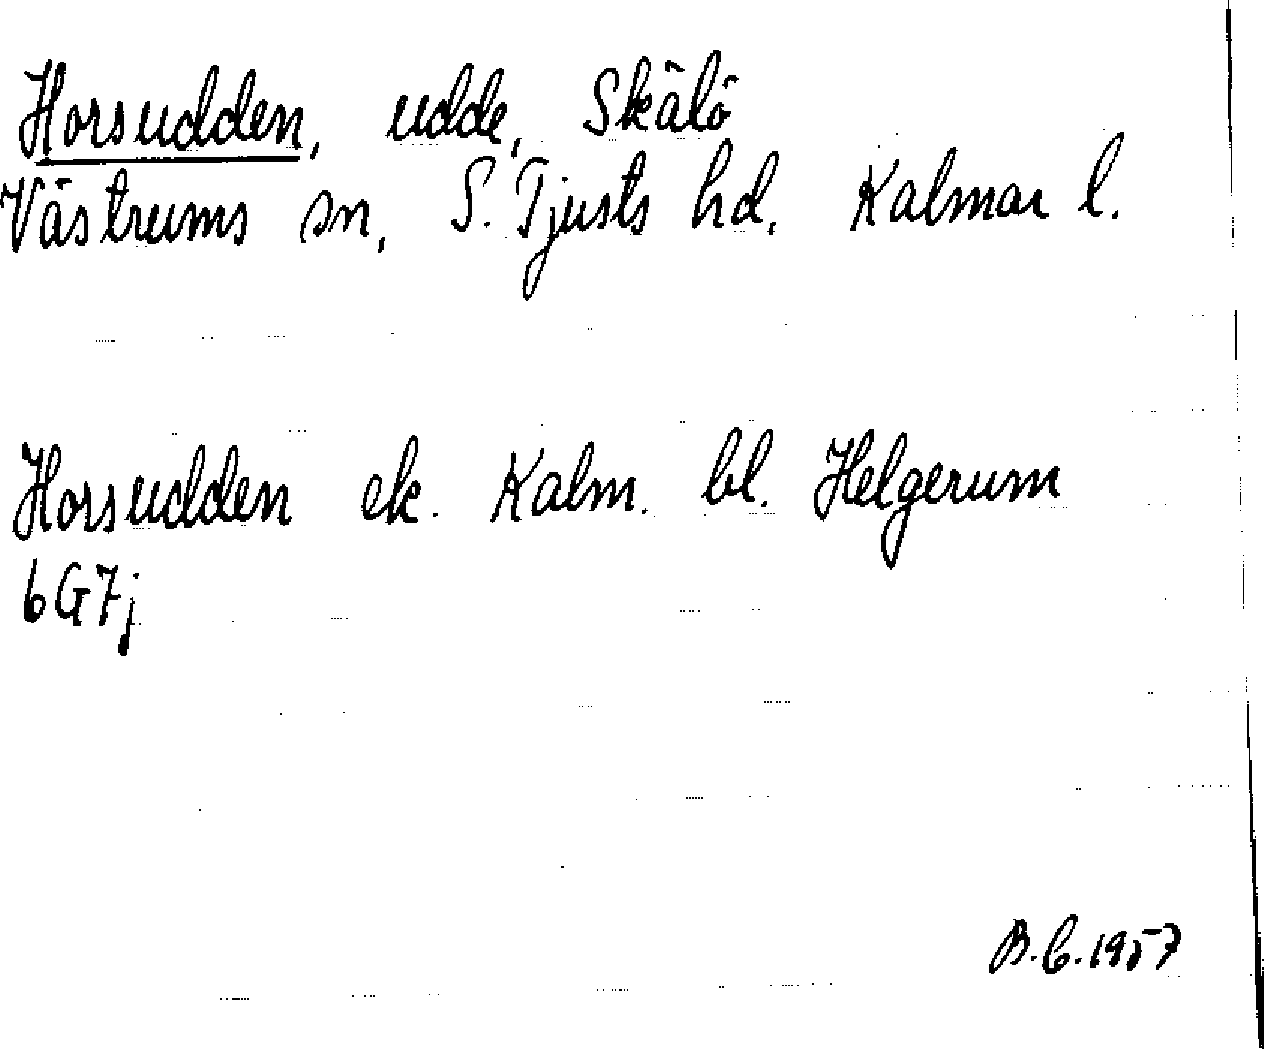 Horsudden, udde, Skälö
Västrums sn, S. Tjusts hd, Kalmar l.
Horsudden ek. Kalm. bl. Helgerum
6G7j
B.C. 1957